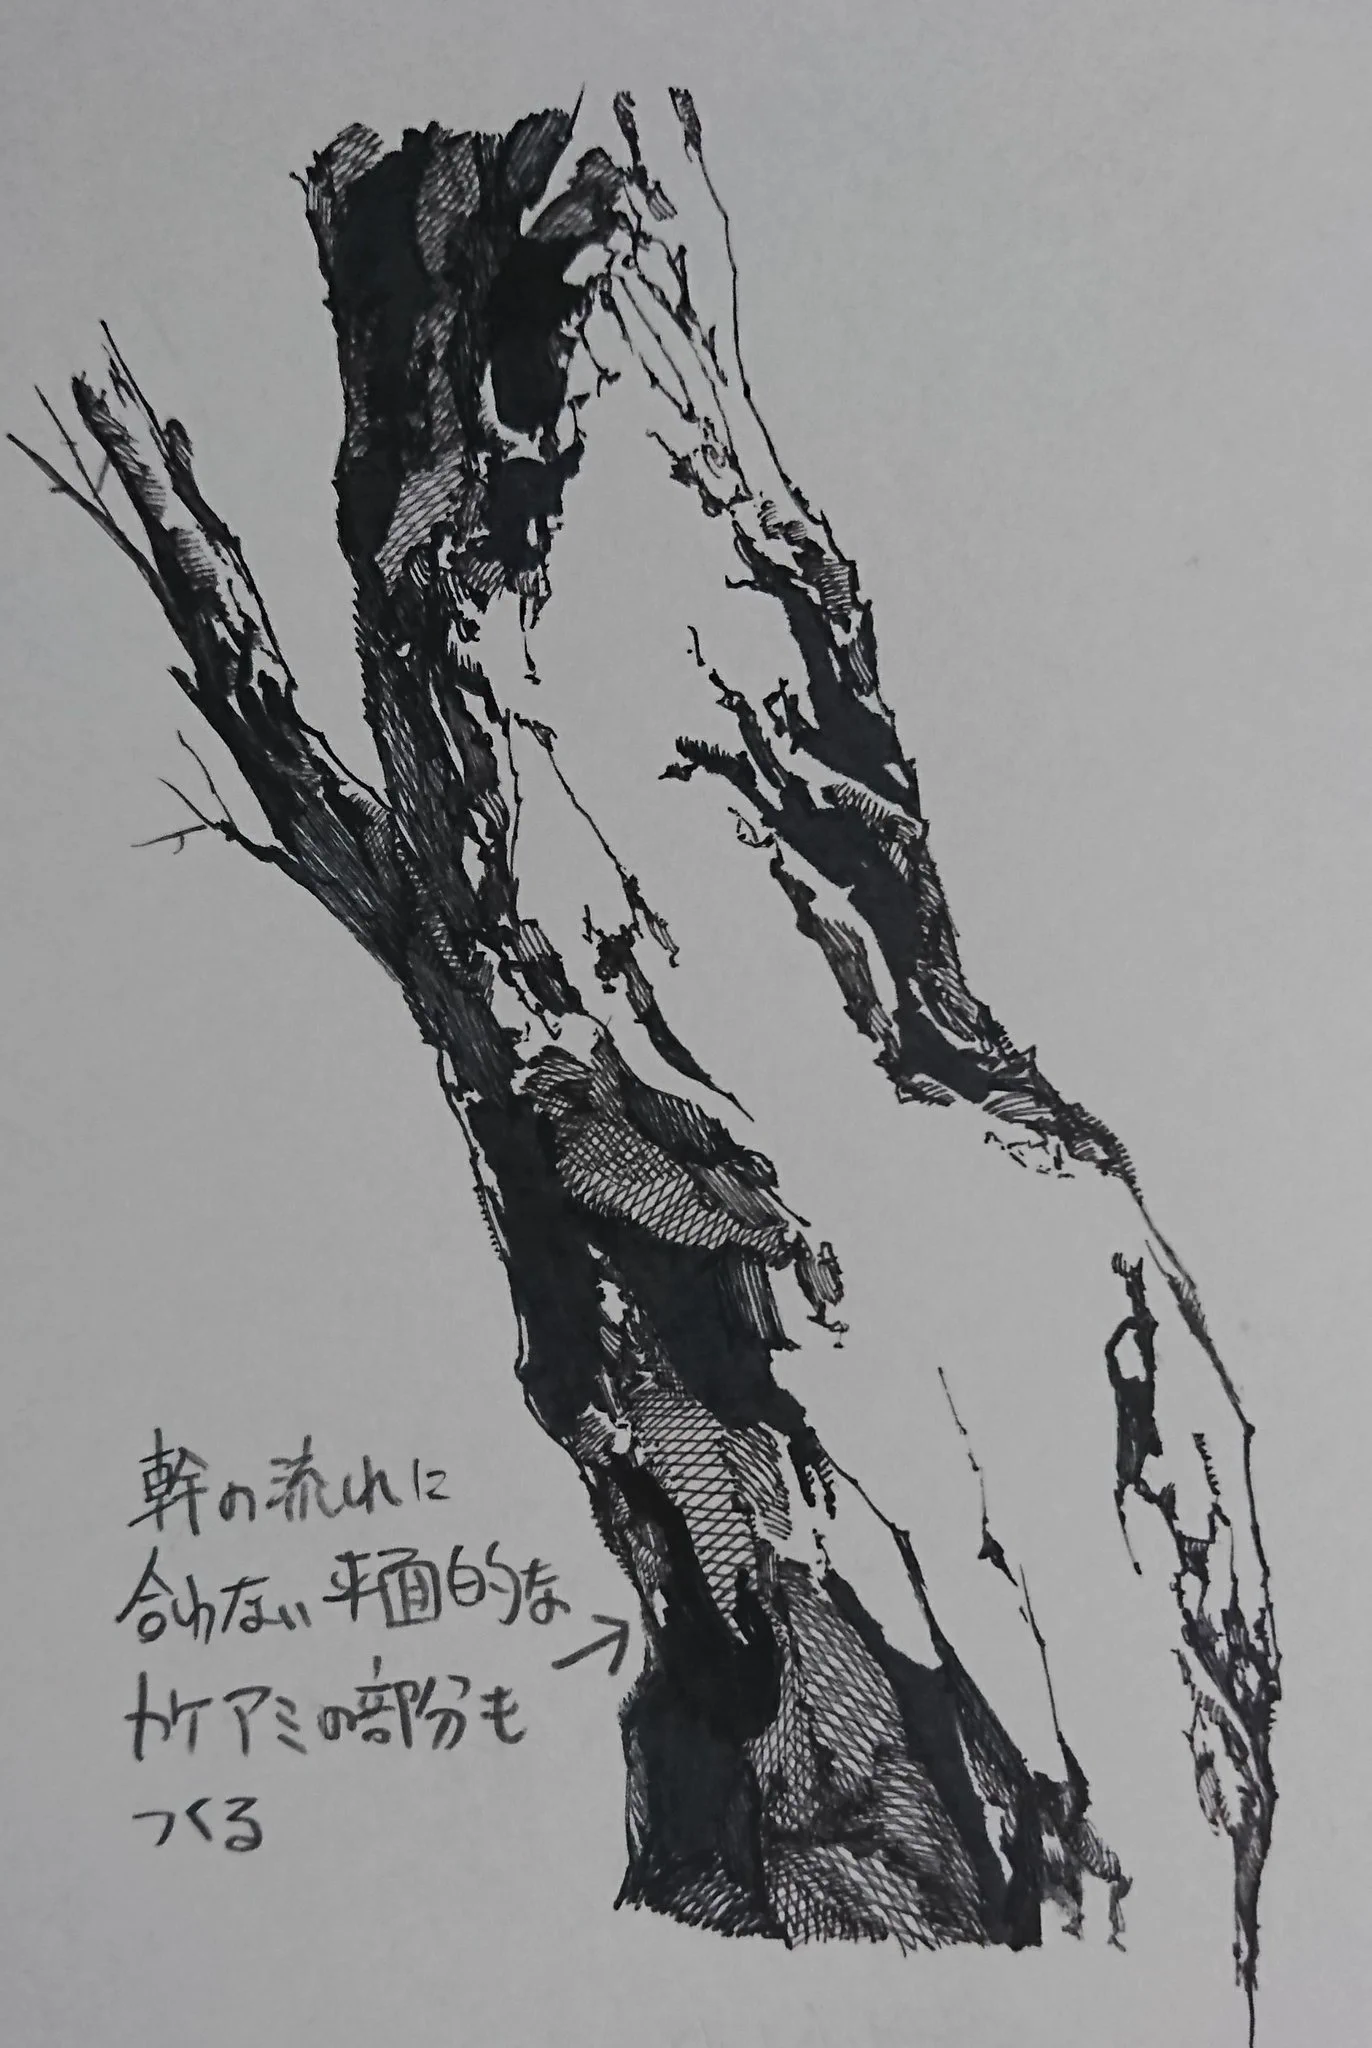 幹の流れに
合わない平面的な
カケアミの部分も
つくる